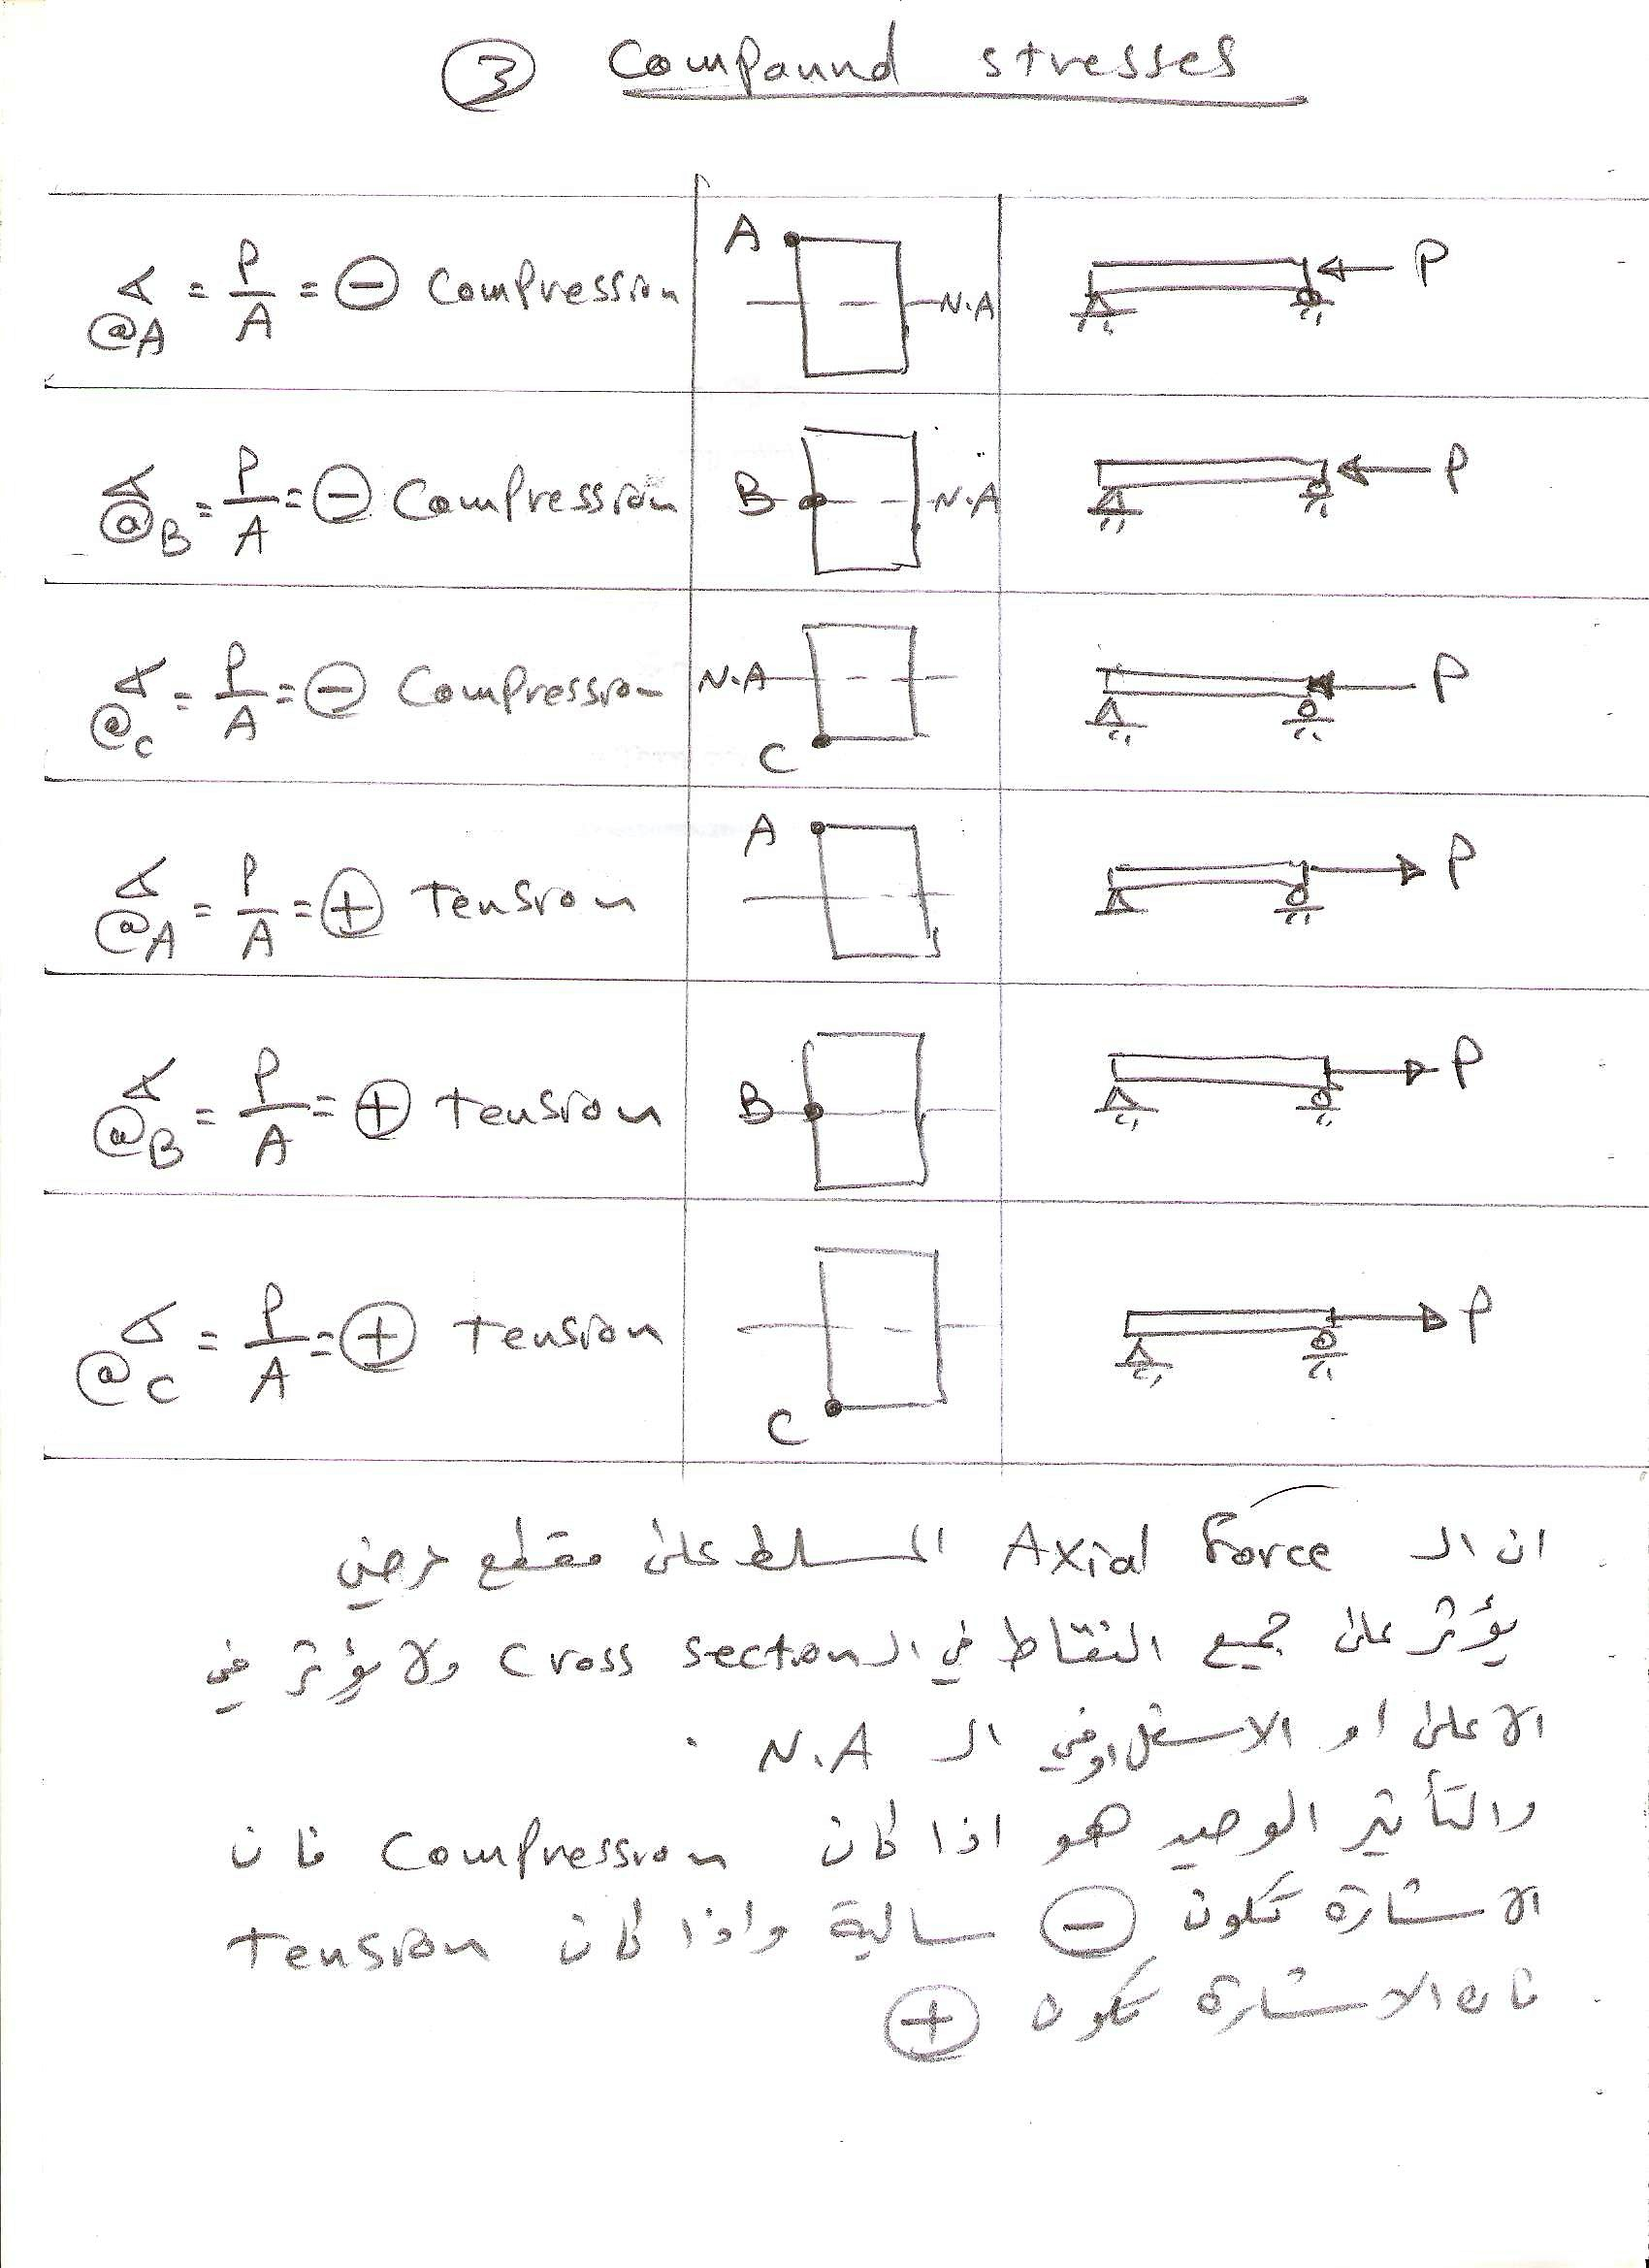 ③ Compound stresses
σ@A = P/A = ⊖ Compression A N.A P
σ@B = P/A = ⊖ Compression B N.A P
σ@C = P/A = ⊖ Compression N.A C P
σ@A = P/A = ⊕ Tension A P
σ@B = P/A = ⊕ tension B P
σ@C = P/A = ⊕ tension C P
ان الـ Axial Force المسلط على مقطع عرضي
يؤثر على جميع النقاط في الـ Cross section ولا يؤثر في
الاعلى او الاسفل او في الـ N.A .
والتأثير الوحيد هو اذا كان Compression فان
الاشارة تكون ⊖ سالبة واذا كان Tension
فان الاشارة تكون ⊕